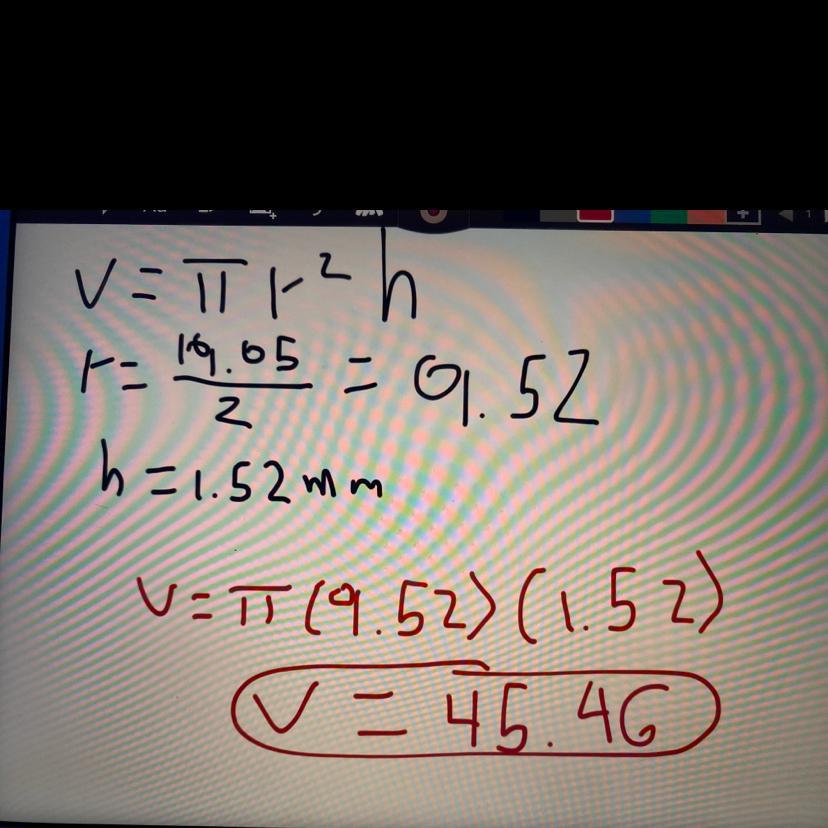 V = π r² h
r = 19.05/2 = 9.52
h = 1.52 mm
V = π (9.52) (1.52)
V = 45.46